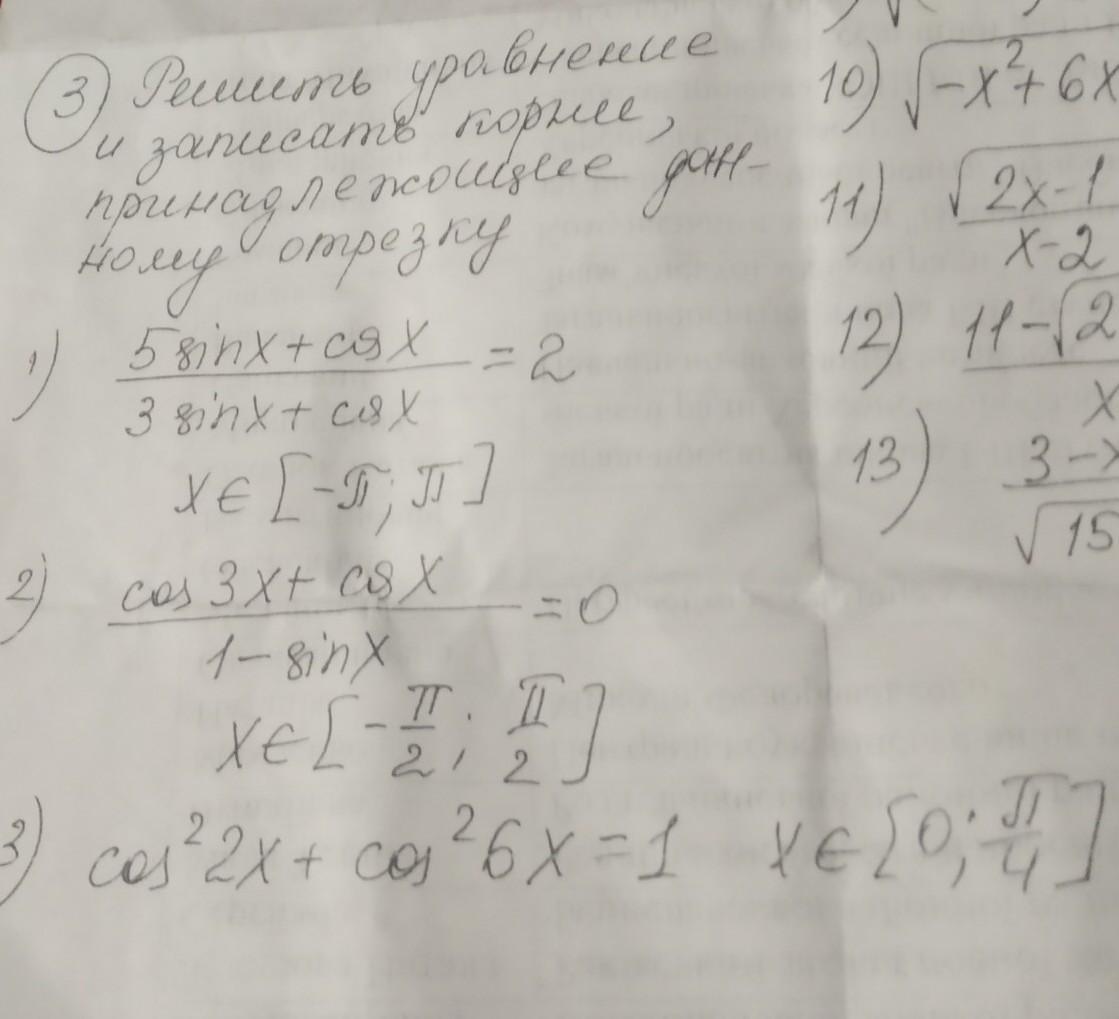 3) Решить уравнение
и записать корни,
принадлежащие дан-
ному отрезку
1) (5 sin x + cos x) / (3 sin x + cos x) = 2
x ∈ [-π; π]
2) (cos 3x + cos x) / (1 - sin x) = 0
x ∈ [-π/2; π/2]
3) cos² 2x + cos² 6x = 1 x ∈ [0; π/4]
10) √-x² + 6x
11) √2x - 1
x - 2
12) 11 - √2
x
13) 3 - x
√15